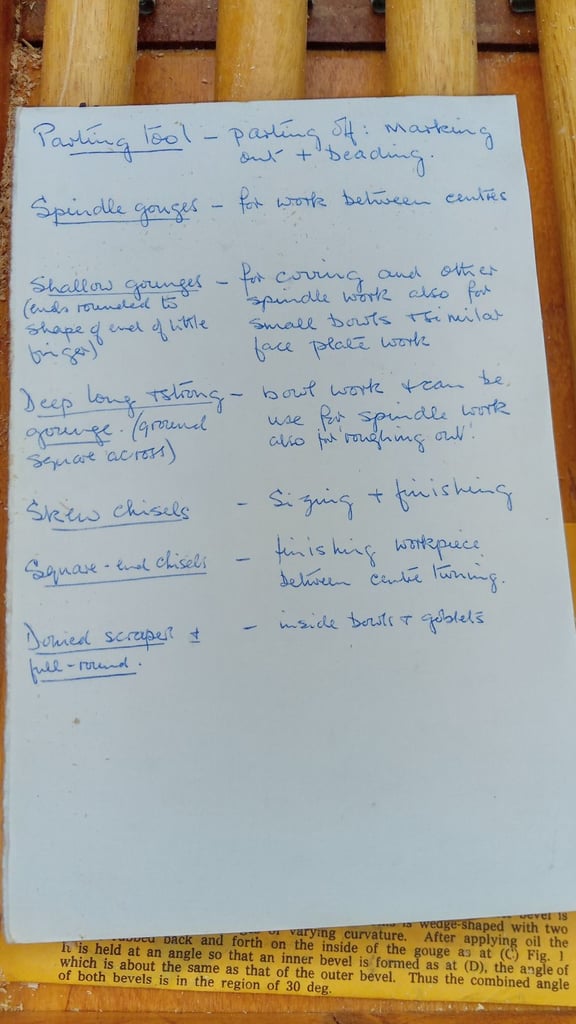 Parting tool - parting off: Marking
out + beading.
Spindle gouges - for work between centres
Shallow gounges - for coving and other
(ends rounded to spindle work also for
shape of end of little small bowls + similar
finger) face plate work
Deep long + strong - bowl work + can be
gounge. (ground use for spindle work
square across) also for 'roughing out'.
Skew chisels - Sizing + finishing
Square-end chisels - finishing workpiece
between centre turning.
Domed scraper + - inside bowls + goblets
full-round.
bevel is
is wedge-shaped with two
rubbed back and forth on the inside of the gouge as at (C) Fig. 1
varying curvature. After applying oil the
It is held at an angle so that an inner bevel is formed as at (D), the angle of
which is about the same as that of the outer bevel. Thus the combined angle
of both bevels is in the region of 30 deg.